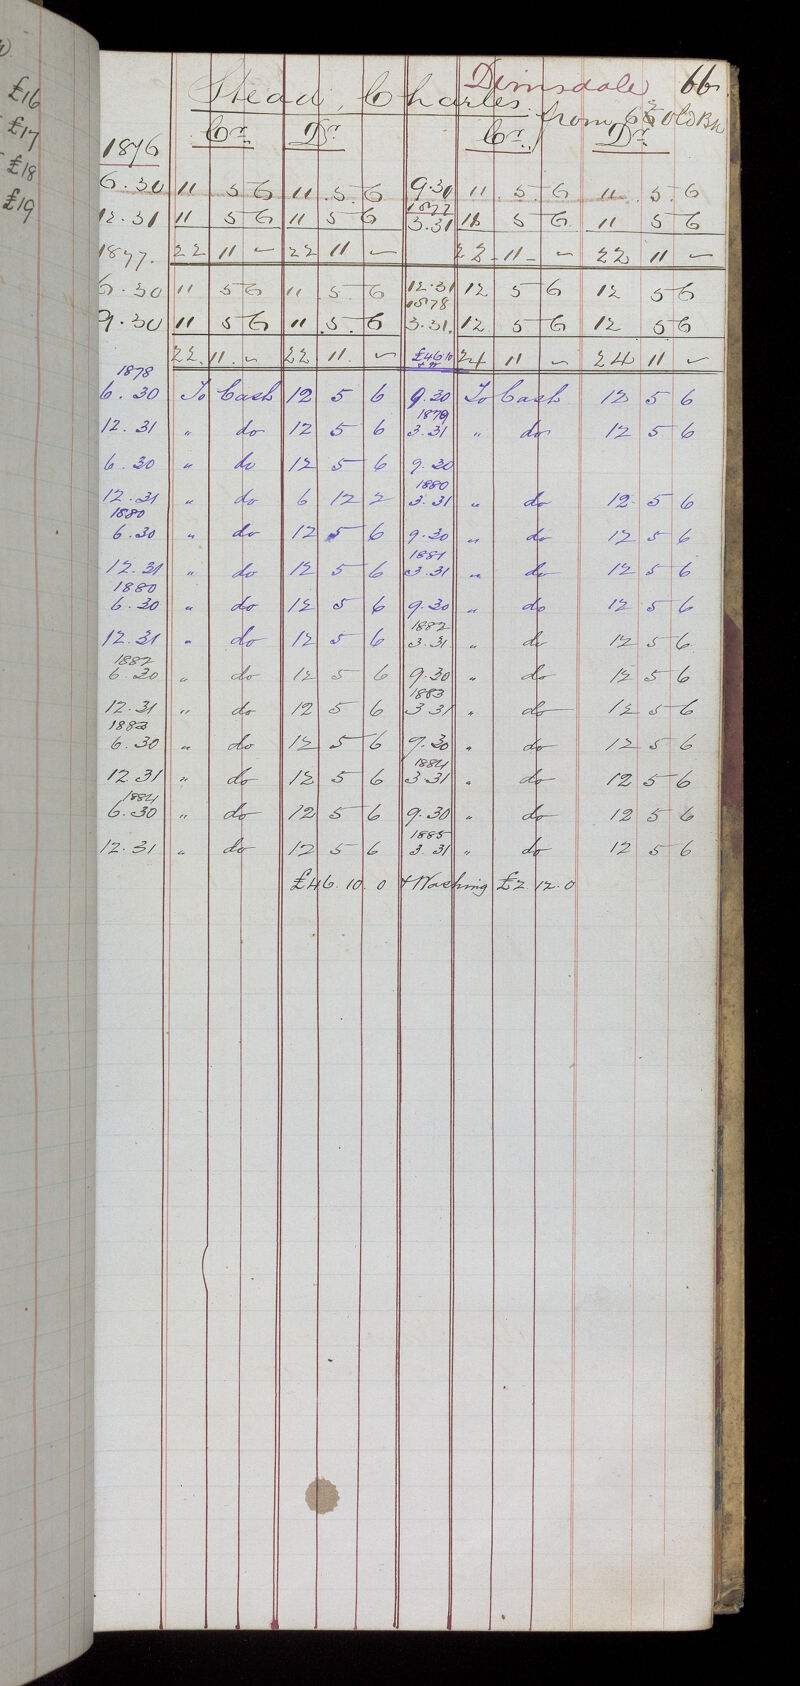 £16
£17
£18
£19
Dimsdale 66
Stead, Charles. from 65 Old Bk
Cr. Dr. Cr. Dr.
1876
6.30 11 5 6 11 5 6 9.30 11 5 6 11 5 6
1877
12.31 11 5 6 11 5 6 3.31 11 5 6 11 5 6
1877. 22 11 – 22 11 – 22 11 – 22 11 –
6.30 11 5 6 11 5 6 12.31 12 5 6 12 5 6
1878
9.30 11 5 6 11 5 6 3.31. 12 5 6 12 5 6
22 11 – 22 11 – £46.10 24 11 – 24 11 –
1878
6.30 To Cash 12 5 6 9.30 To Cash 12 5 6
1879
12.31 " do 12 5 6 3.31 " do 12 5 6
6.30 " do 12 5 6 9.30
1880
12.31 " do 6 12 2 3.31 " do 12 5 6
1880
6.30 " do 12 5 6 9.30 " do 12 5 6
1881
12.31 " do 12 5 6 3.31 " do 12 5 6
1880
6.30 " do 12 5 6 9.30 " do 12 5 6
1882
12.31 " do 12 5 6 3.31 " do 12 5 6
1882
6.30 " do 12 5 6 9.30 " do 12 5 6
1883
12.31 " do 12 5 6 3.31 " do 12 5 6
1883
6.30 " do 12 5 6 9.30 " do 12 5 6
1884
12.31 " do 12 5 6 3.31 " do 12 5 6
1884
6.30 " do 12 5 6 9.30 " do 12 5 6
1885
12.31 " do 12 5 6 3.31 " do 12 5 6
£46.10.0 + Washing £2.12.0